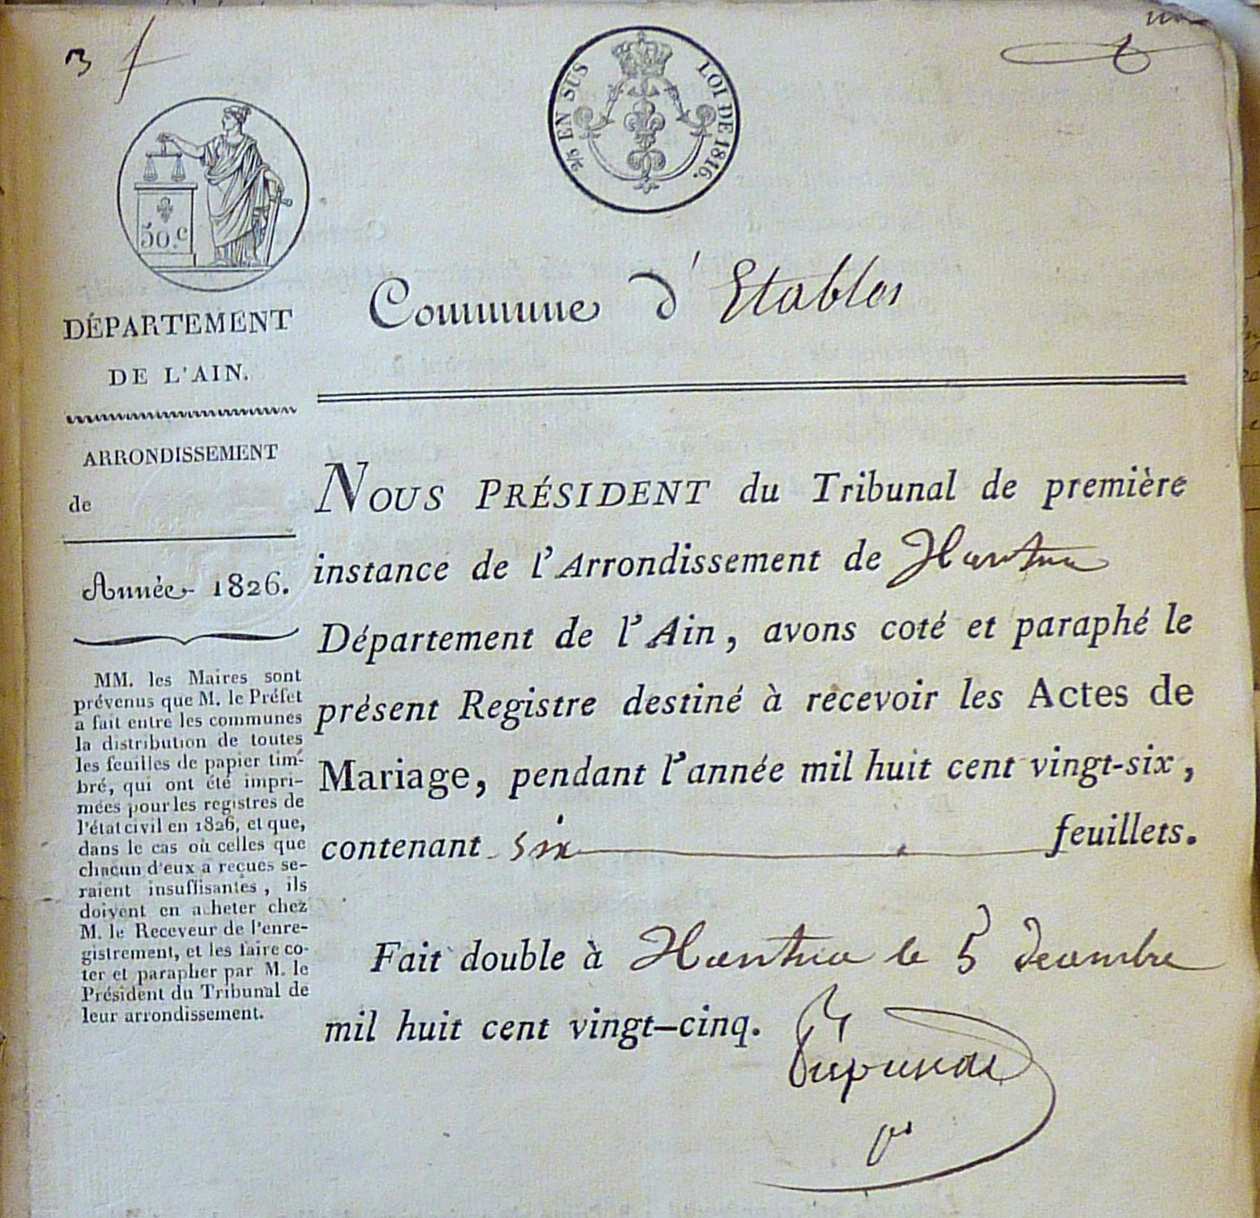 3
un
2/5 EN SUS LOI DE 1816.
50.c
DÉPARTEMENT
DE L'AIN.
ARRONDISSEMENT
de
Année 1826.
MM. les Maires sont
prévenus que M. le Préfet
a fait entre les communes
la distribution de toutes
les feuilles de papier tim-
bré, qui ont été impri-
mées pour les registres de
l'état civil en 1826, et que,
dans le cas où celles que
chacun d'eux a reçues se-
raient insuffisantes, ils
doivent en acheter chez
M. le Receveur de l'enre-
gistrement, et les faire co-
ter et parapher par M. le
Président du Tribunal de
leur arrondissement.
Commune d'Etables
NOUS PRÉSIDENT du Tribunal de première
instance de l'Arrondissement de Nantua
Département de l'Ain, avons coté et paraphé le
présent Registre destiné à recevoir les Actes de
Mariage, pendant l'année mil huit cent vingt-six,
contenant six feuillets.
Fait double à Nantua le 5 decembre
mil huit cent vingt-cinq.